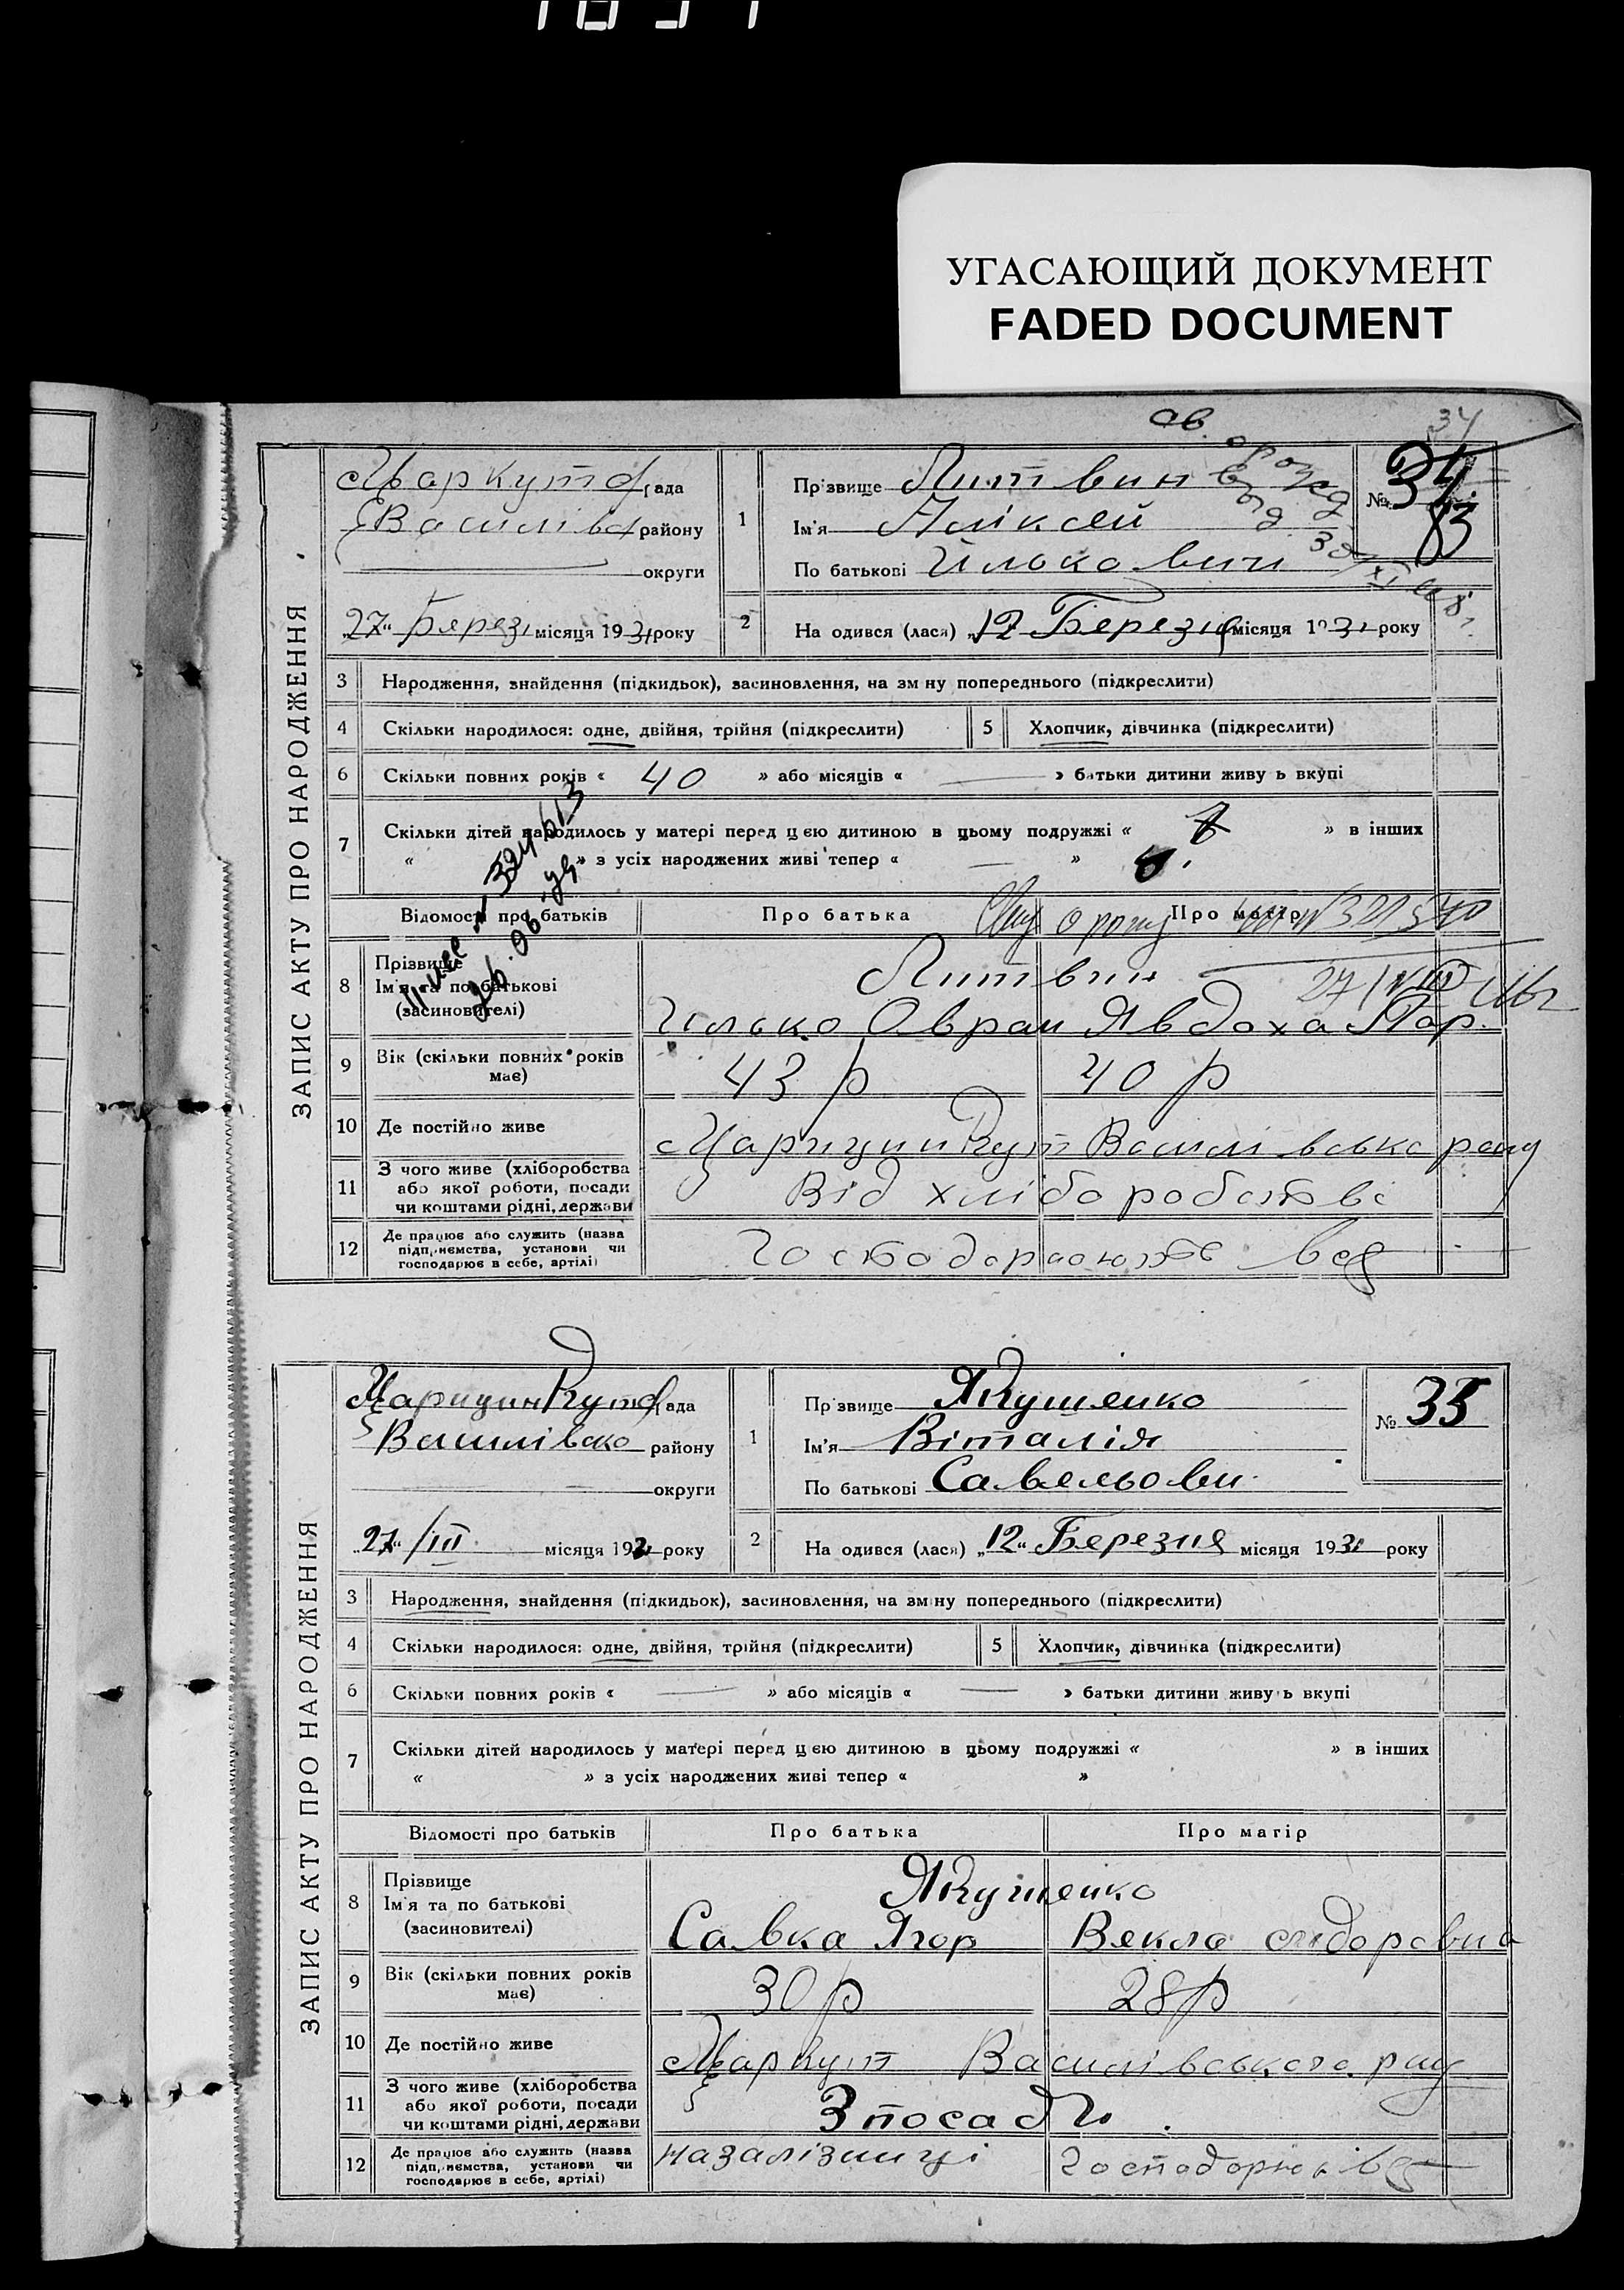 УГАСАЮЩИЙ ДОКУМЕНТ
FADED DOCUMENT
34
ЗАПИС АКТУ ПРО НАРОДЖЕННЯ
Царкутс рада
Василівс району
округи
„27“ Березн місяця 1931 року
1
Прізвище Литвин
Ім'я Аліксей
По батькові Ількович
№ 34
83
2
На одився (лася) „12 Березня місяця 1931 року
3 Народження, знайдення (підкидьок), засиновлення, на зм ну попереднього (підкреслити)
4 Скільки народилося: одне, двійня, трійня (підкреслити)
5 Хлопчик, дівчинка (підкреслити)
6 Скільки повних років « 40 » або місяців « — » батьки дитини живу ь вкупі
7 Скільки дітей народилось у матері перед цією дитиною в цьому подружжі « 7 » в інших
« » з усіх народжених живі тепер « — » 6.
Відомості про батьків Про батька Про матір
8 Прізвище
Ім'я та по батькові
(засиновителі)
Литвин
Ілько Оврам Явдоха Пар.
9 Вік (скільки повних років має) 43 р 40 р
10 Де постійно живе Царицин Кут Василівсько рану
11 З чого живе (хліборобства або якої роботи, посади чи коштами рідні, держави
Від хліборобства
12 Де працює або служить (назва підприємства, установи чи господарює в себе, артілі)
Господарюють всб
ЗАПИС АКТУ ПРО НАРОДЖЕННЯ
ЦарицинКутс рада
Василівсько району
округи
„27“ /III місяця 1931 року
1
Прізвище Якушенко
Ім'я Віталія
По батькові Савельови
№ 35
2
На одився (лася) „12“ Березня місяця 1931 року
3 Народження, знайдення (підкидьок), засиновлення, на зм ну попереднього (підкреслити)
4 Скільки народилося: одне, двійня, трійня (підкреслити)
5 Хлопчик, дівчинка (підкреслити)
6 Скільки повних років « — » або місяців « — » батьки дитини живу ь вкупі
7 Скільки дітей народилось у матері перед цією дитиною в цьому подружжі « » в інших
« » з усіх народжених живі тепер « »
Відомості про батьків Про батька Про матір
8 Прізвище
Ім'я та по батькові
(засиновителі)
Якушенко
Савка Ягор Векла Сидоровна
9 Вік (скільки повних років має) 30 р 28 р
10 Де постійно живе Царкут Василівського рну
11 З чого живе (хліборобства або якої роботи, посади чи коштами рідні, держави
З посади
12 Де працює або служить (назва підприємства, установи чи господарює в себе, артілі)
На залізниці
Господарює